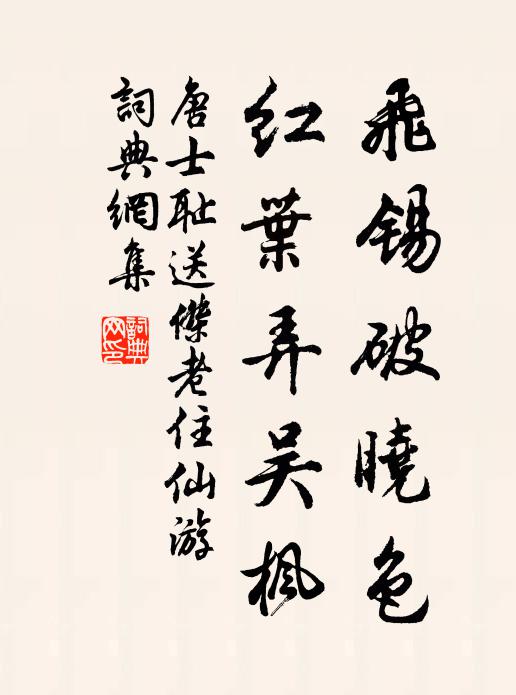 飛錫破曉色
紅葉弄吴楓
唐士耻送傑老住仙游
詞典網集
詞典网印